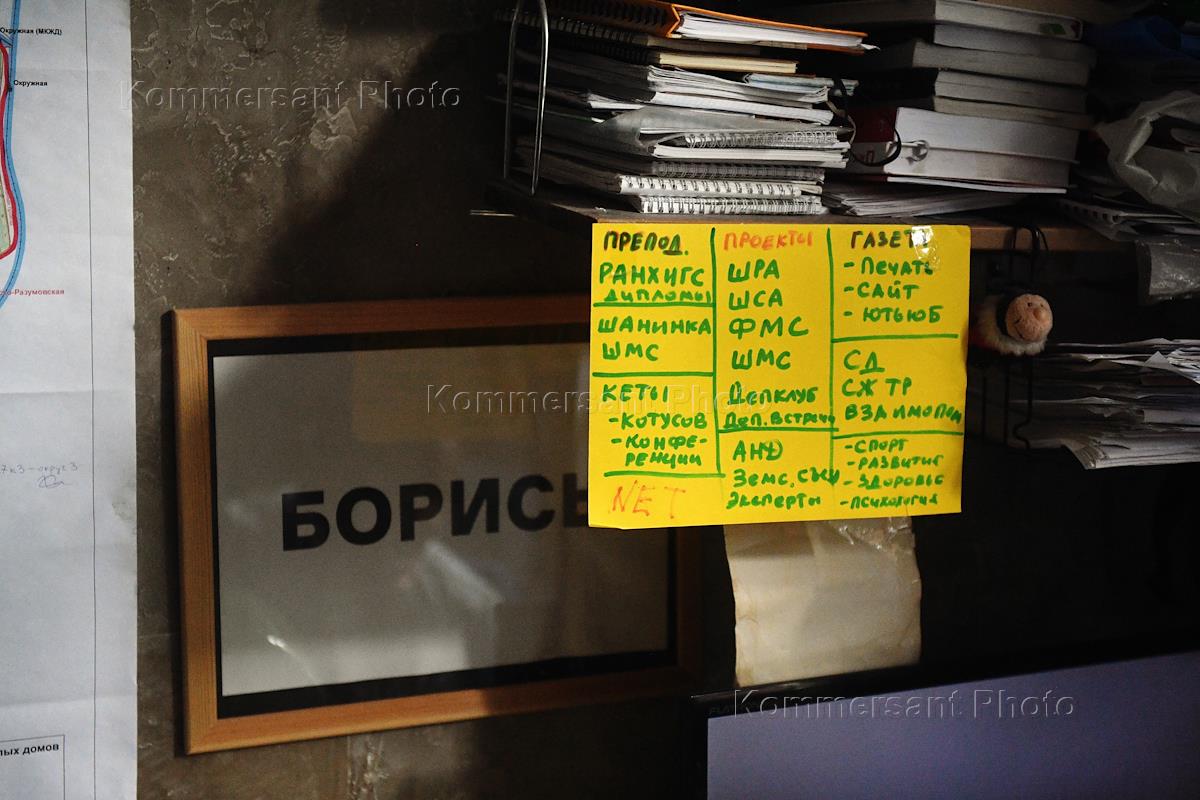 Окружная (МКЖД)
Окружная
Kommersant Photo
ПРЕПОД.
РАНХИГС
ДИПЛОМЫ
ШАНИНКА
ШМС
КЕТЫ
-КОТУСОВ
-КОНФЕ-
РЕНЦИИ
NET
ПРОЕКТЫ
ШРА
ШСА
ФМС
ШМС
ДЕПКЛУБ
ДЕП. ВСТРЕЧИ
АНФ
ЗЕМС. СЪЕЗД
ЭКСПЕРТЫ
ГАЗЕТ
- ПЕЧАТЬ
- САЙТ
- ЮТЬЮБ
СД
СЖ ТР
ВЗАИМОПОМ
-СПОРТ
-РАЗВИТИЕ
-ЗДОРОВЬЕ
-ПСИХОЛОГИЯ
Kommersant Photo
БОРИСЬ
Kommersant Photo
лых домов